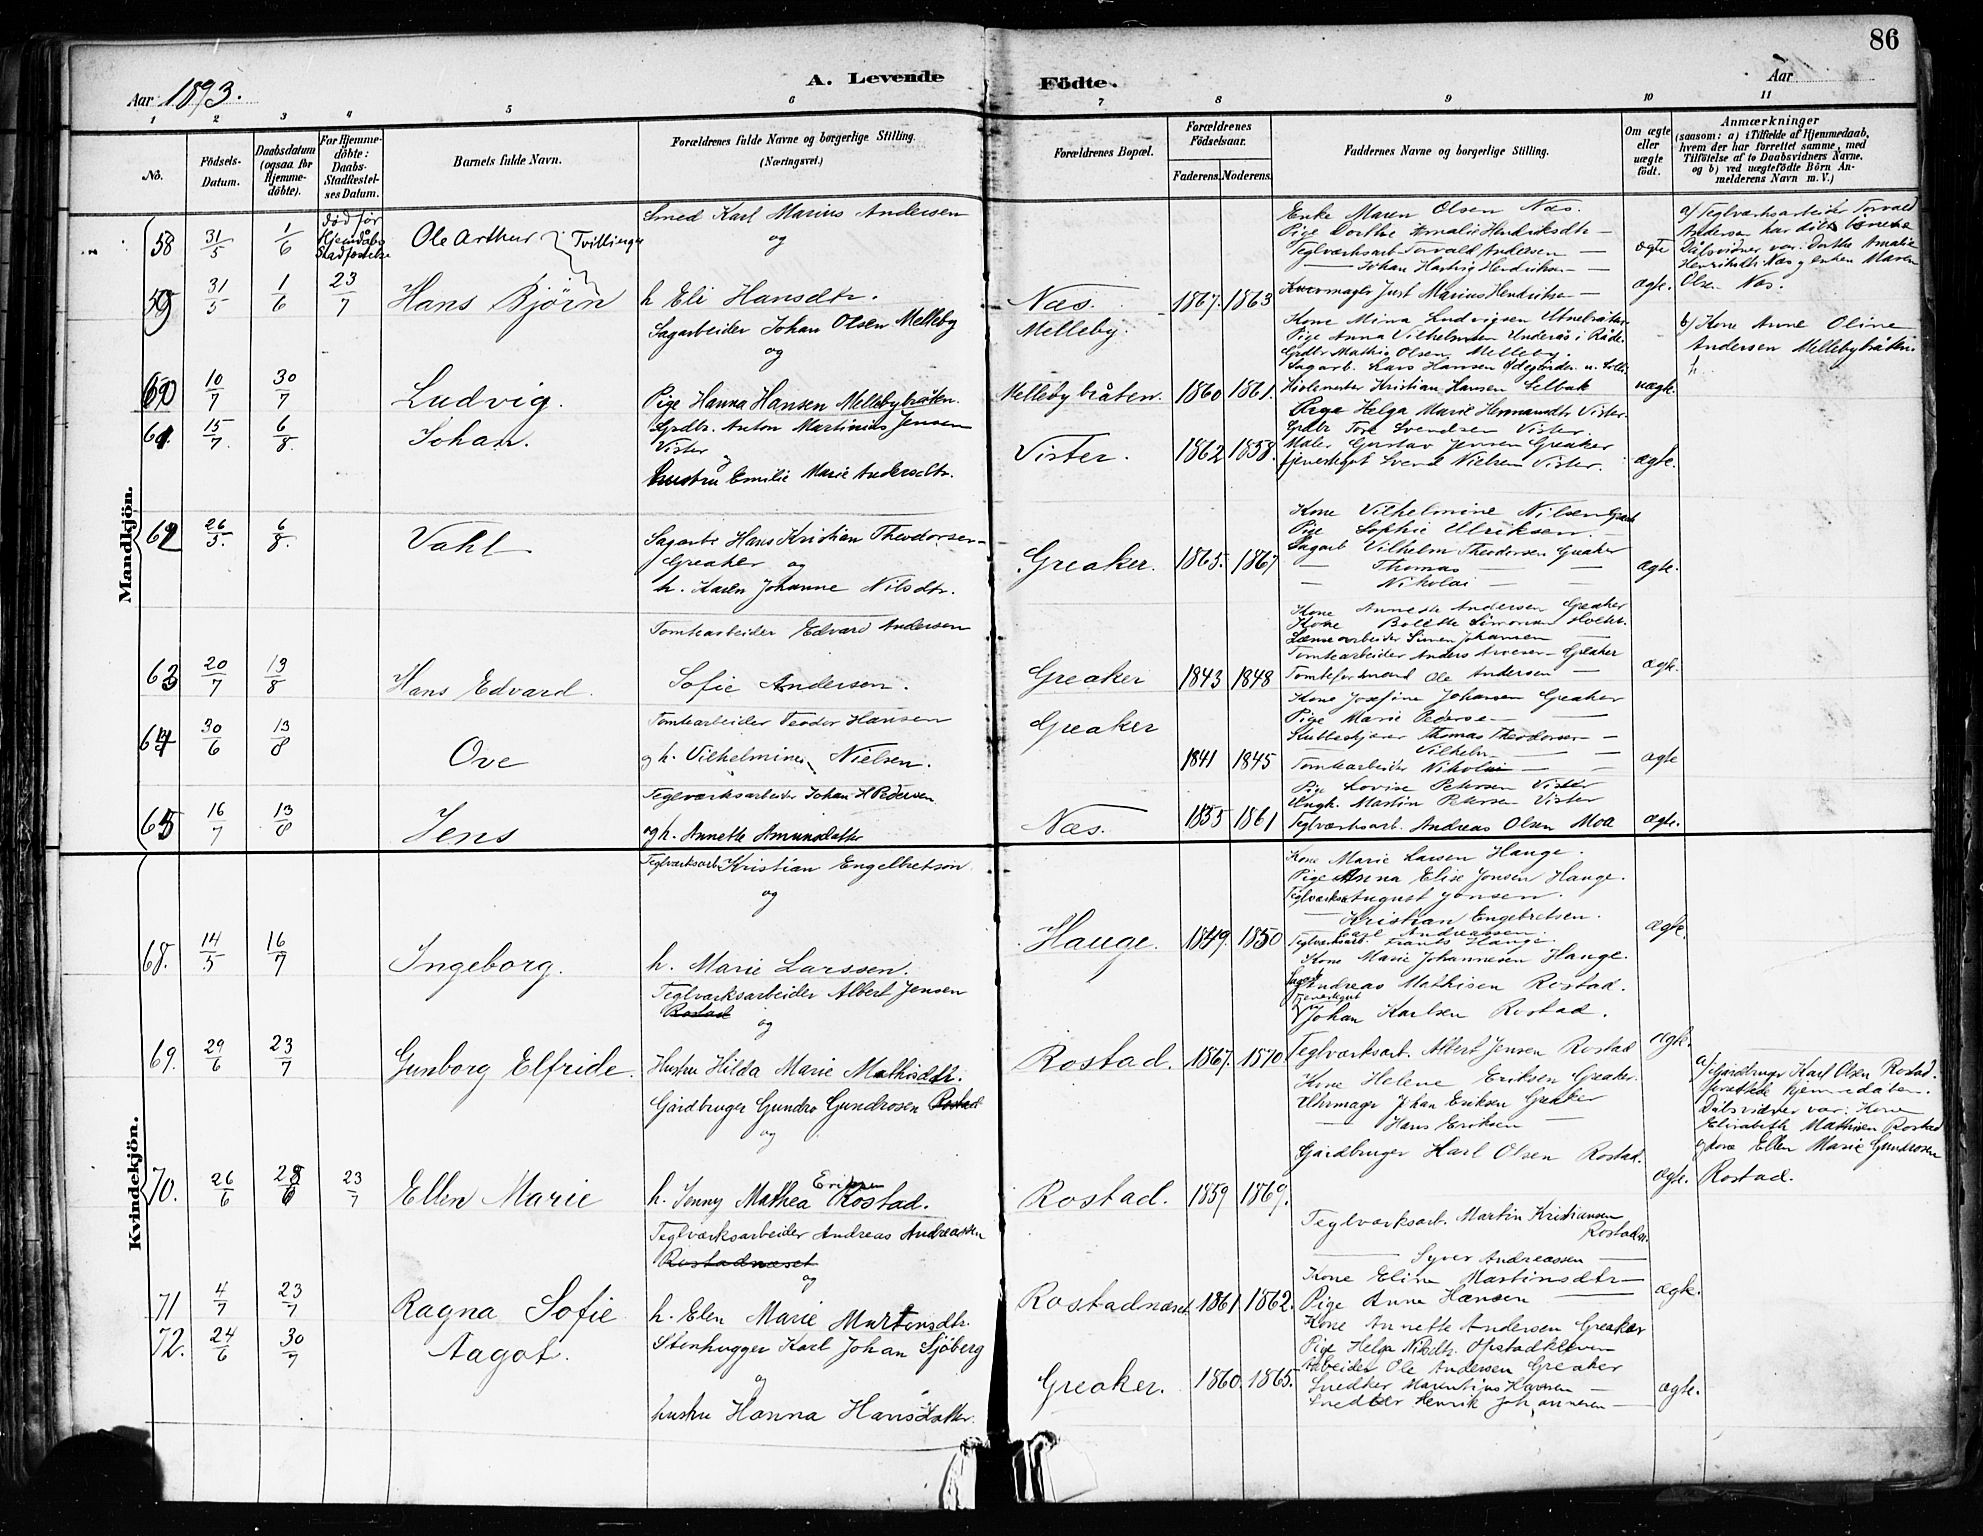 86
Aar 1893.
A. Levende Födte.
Aar
1 2 3 4 5 6 7 8 9 10 11
No.
Födsels-Datum.
Daabsdatum (ogsaa for Hjemmedöbte).
For Hjemmedöbte: Daabs-Stadfæstelses Datum.
Barnets fulde Navn.
Forældrenes fulde Navne og borgerlige Stilling. (Næringsvei.)
Forældrenes Bopæl.
Forældrenes Födselsaar.
Faderens. Moderens.
Faddernes Navne og borgerlige Stilling.
Om ægte eller uægte födt.
Anmærkninger
(saasom: a) i Tilfælde af Hjemmedaab, hvem der har forrettet samme, med Tilföielse af to Daabsvidners Navne, og b) ved uægtefödte Börn Anmelderens Navn m. V.)
Mandkjön.
58 31/5 1/6 død før Hjemdåbs Stadfæstelse
Ole Arthur Tvillinger
Smed Karl Marius Andersen
og
Enke Maren Olsen Næs.
Pige Dorthe Amalie Hendriksdtr —
Teglværksarb Torvald Andersen —
— Johan Hartvig Hendriksen —
ægte
a) Teglværksarbeider Torvald
Andersen har døbt børnene
Dåbsvidner var: Dorthe Amalie
Henriksdtr Næs og enken Maren
Olsen Næs.
59 31/5 1/6 23/7
Hans Bjørn
h. Eli Hansdtr.
Næs. 1867. 1863
Just Marius Hendriksen —
ægte.
Sagarbeider Johan Olsen Melleby
og
Melleby.
Kone Mina Ludvigsen
Pige Anna Vilhelmsen Underås i Råde
Grdbr Mathis Olsen Melleby.
Sagarb. Lars Hansen
b) Kone Anne Oline
Andersen Mellebybråten.
60 10/7 30/7
Ludvig.
Pige Hanna Hansen Mellebybråten.
Mellebybråten. 1860 1861.
Kristian Hansen Selbak
uægte.
61. 15/7 6/8
Johan.
Grdbr. Anton Martinius Jensen
Vister og
hustru Emilie Marie Andersdtr.
Vister. 1862 1858.
Pige Helga Marie Hermansdtr Vister.
Grdbr Tore Svendsen Vister.
Maler Gustav Jensen Greaker
Tjenestegut Svend Nielsen Vister.
ægte.
62 26/5. 6/8.
Vahl
Sagarb Hans Kristian Theodorsen
Greaker og
h. Karen Johanne Nilsdtr.
Greaker. 1865. 1867
Kone Vilhelmine Nilsen Greak
Pige Sophie Ulriksen. —
Sagarb Vilhelm Theodorsen Greaker
— Thomas — —
— Nikolai — —
ægte.
63 20/7 13/8
Hans Edvard.
Tomtearbeider Edvard Andersen
Sofie Andersen.
Greaker 1843 1848
Kone Annette Andersen Greaker
Kone Bolette Simonsen
Lænsearbeider Simen Johansen —
Tomtearbeider Anders — Greaker
Tomteformand Ole Andersen —
ægte.
64 30/6 13/8
Ove
Tomtearbeider Teodor Hansen
og h. Vilhelmine Nielsen.
Greaker 1841 1845
Kone Josefine Johansen Greaker
Pige Marie Pedersen — —
Thomas Theodorsen —
— Vilhelm — —
Tomtearbeider Nikolai — —
ægte
65 16/7 13/8
Jens
Teglværksarbeider Johan H Pedersen
og h. Annette Amundsdatter
Næs. 1855 1861
Pige Lovise Petersen Vister
Ungk. Martin Petersen Vister
Teglværksarb. Andreas Olsen Moa
ægte.
Kvindekjön.
68. 14/5 16/7
Ingeborg.
Teglværksarb Kristian Engelbretson
og
h. Marie Larssen.
Hauge. 1849. 1850
Kone Marie Larsen Hauge.
Pige Anna Elise Jonsen Hauge.
Teglværksa August Jonsen.
— Kristian Engebretsen.
— Carl Andreassen.
Teglværksarb. Frants Hauge.
ægte.
69. 29/6 23/7
Gunborg Elfride.
Teglværksarbeider Albert Jensen
Rostad
og
Hustru Hilda Marie Mathisdtr.
Rostad. 1867. 1870.
Kone Marie Johannesen Hauge.
Andreas Mathisen Rostad.
Johan Karlsen Rostad.
Teglværksarb. Albert Jensen Rostad
ægte.
70. 26/6 28/6 23/7
Ellen Marie
Gårdbruger Gundro Gundrosen Rostad
og
h. Jenny Mathea Eriksen Rostad.
Rostad. 1859 1869.
Kone Helene Eriksen Greaker.
Uhrmager Johan Eriksen Greaker
— Hans Eriksen —
Gårdbruger Karl Olsen Rostad.
ægte.
a) Gårdbruger Karl Olsen Rostad.
forrettede hjemmedåben.
Dåbsvidner var: Kone
Elisabeth Mathisen Rostad
og kone Ellen Marie Gundrosen
Rostad.
71 4/7 23/7
Ragna Sofie
Teglværksarbeider Andreas Andreassen
Rostadnæset
og
h. Elen Marie Martinsdtr.
Rostadnæset 1861 1862.
Teglværksarb. Martin Kristiansen
Rostadn.
— Syver Andreassen —
Kone Eline Martinsdtr —
Pige Anne Hansen —
ægte.
72. 24/6 30/7
Aagot.
Stenhugger Karl Johan Sjöberg
og
hustru Hanna Hansdatter.
Greaker. 1860. 1865.
Kone Annette Andersen Greaker
Pige Helga Nilsdtr. Opstadkleven
Arbeider Ole Andersen Greaker
Snedker Marentius Hansen —
Snedker Henrik Johannesen —
ægte.